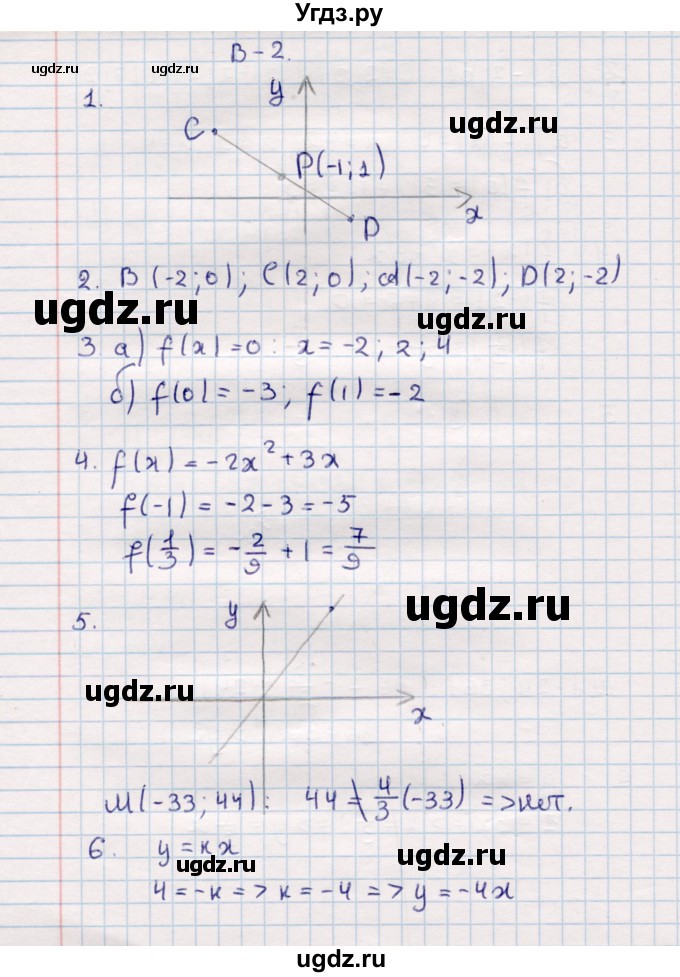 Угдз.ру
В-2.
ugdz.ru ugdz.ru
1. y
C ugdz.ru
P(-1; 1)
x
D
2. B(-2; 0); C(2; 0); A(-2; -2); D(2; -2)
ugdz.ru ugdz.ru
3 а) f(x)=0: x=-2; 2; 4
б) f(0)=-3; f(1)=-2
4. f(x)=-2x²+3x
f(-1)=-2-3=-5
f(1/3)=-2/9+1=7/9
5. y ugdz.ru
ugdz.ru
x
M(-33; 44): 44≠4/3(-33) =>нет.
6. y=кx
ugdz.ru ugdz.ru
4=-к=>к=-4=>y=-4x
ugdz.ru